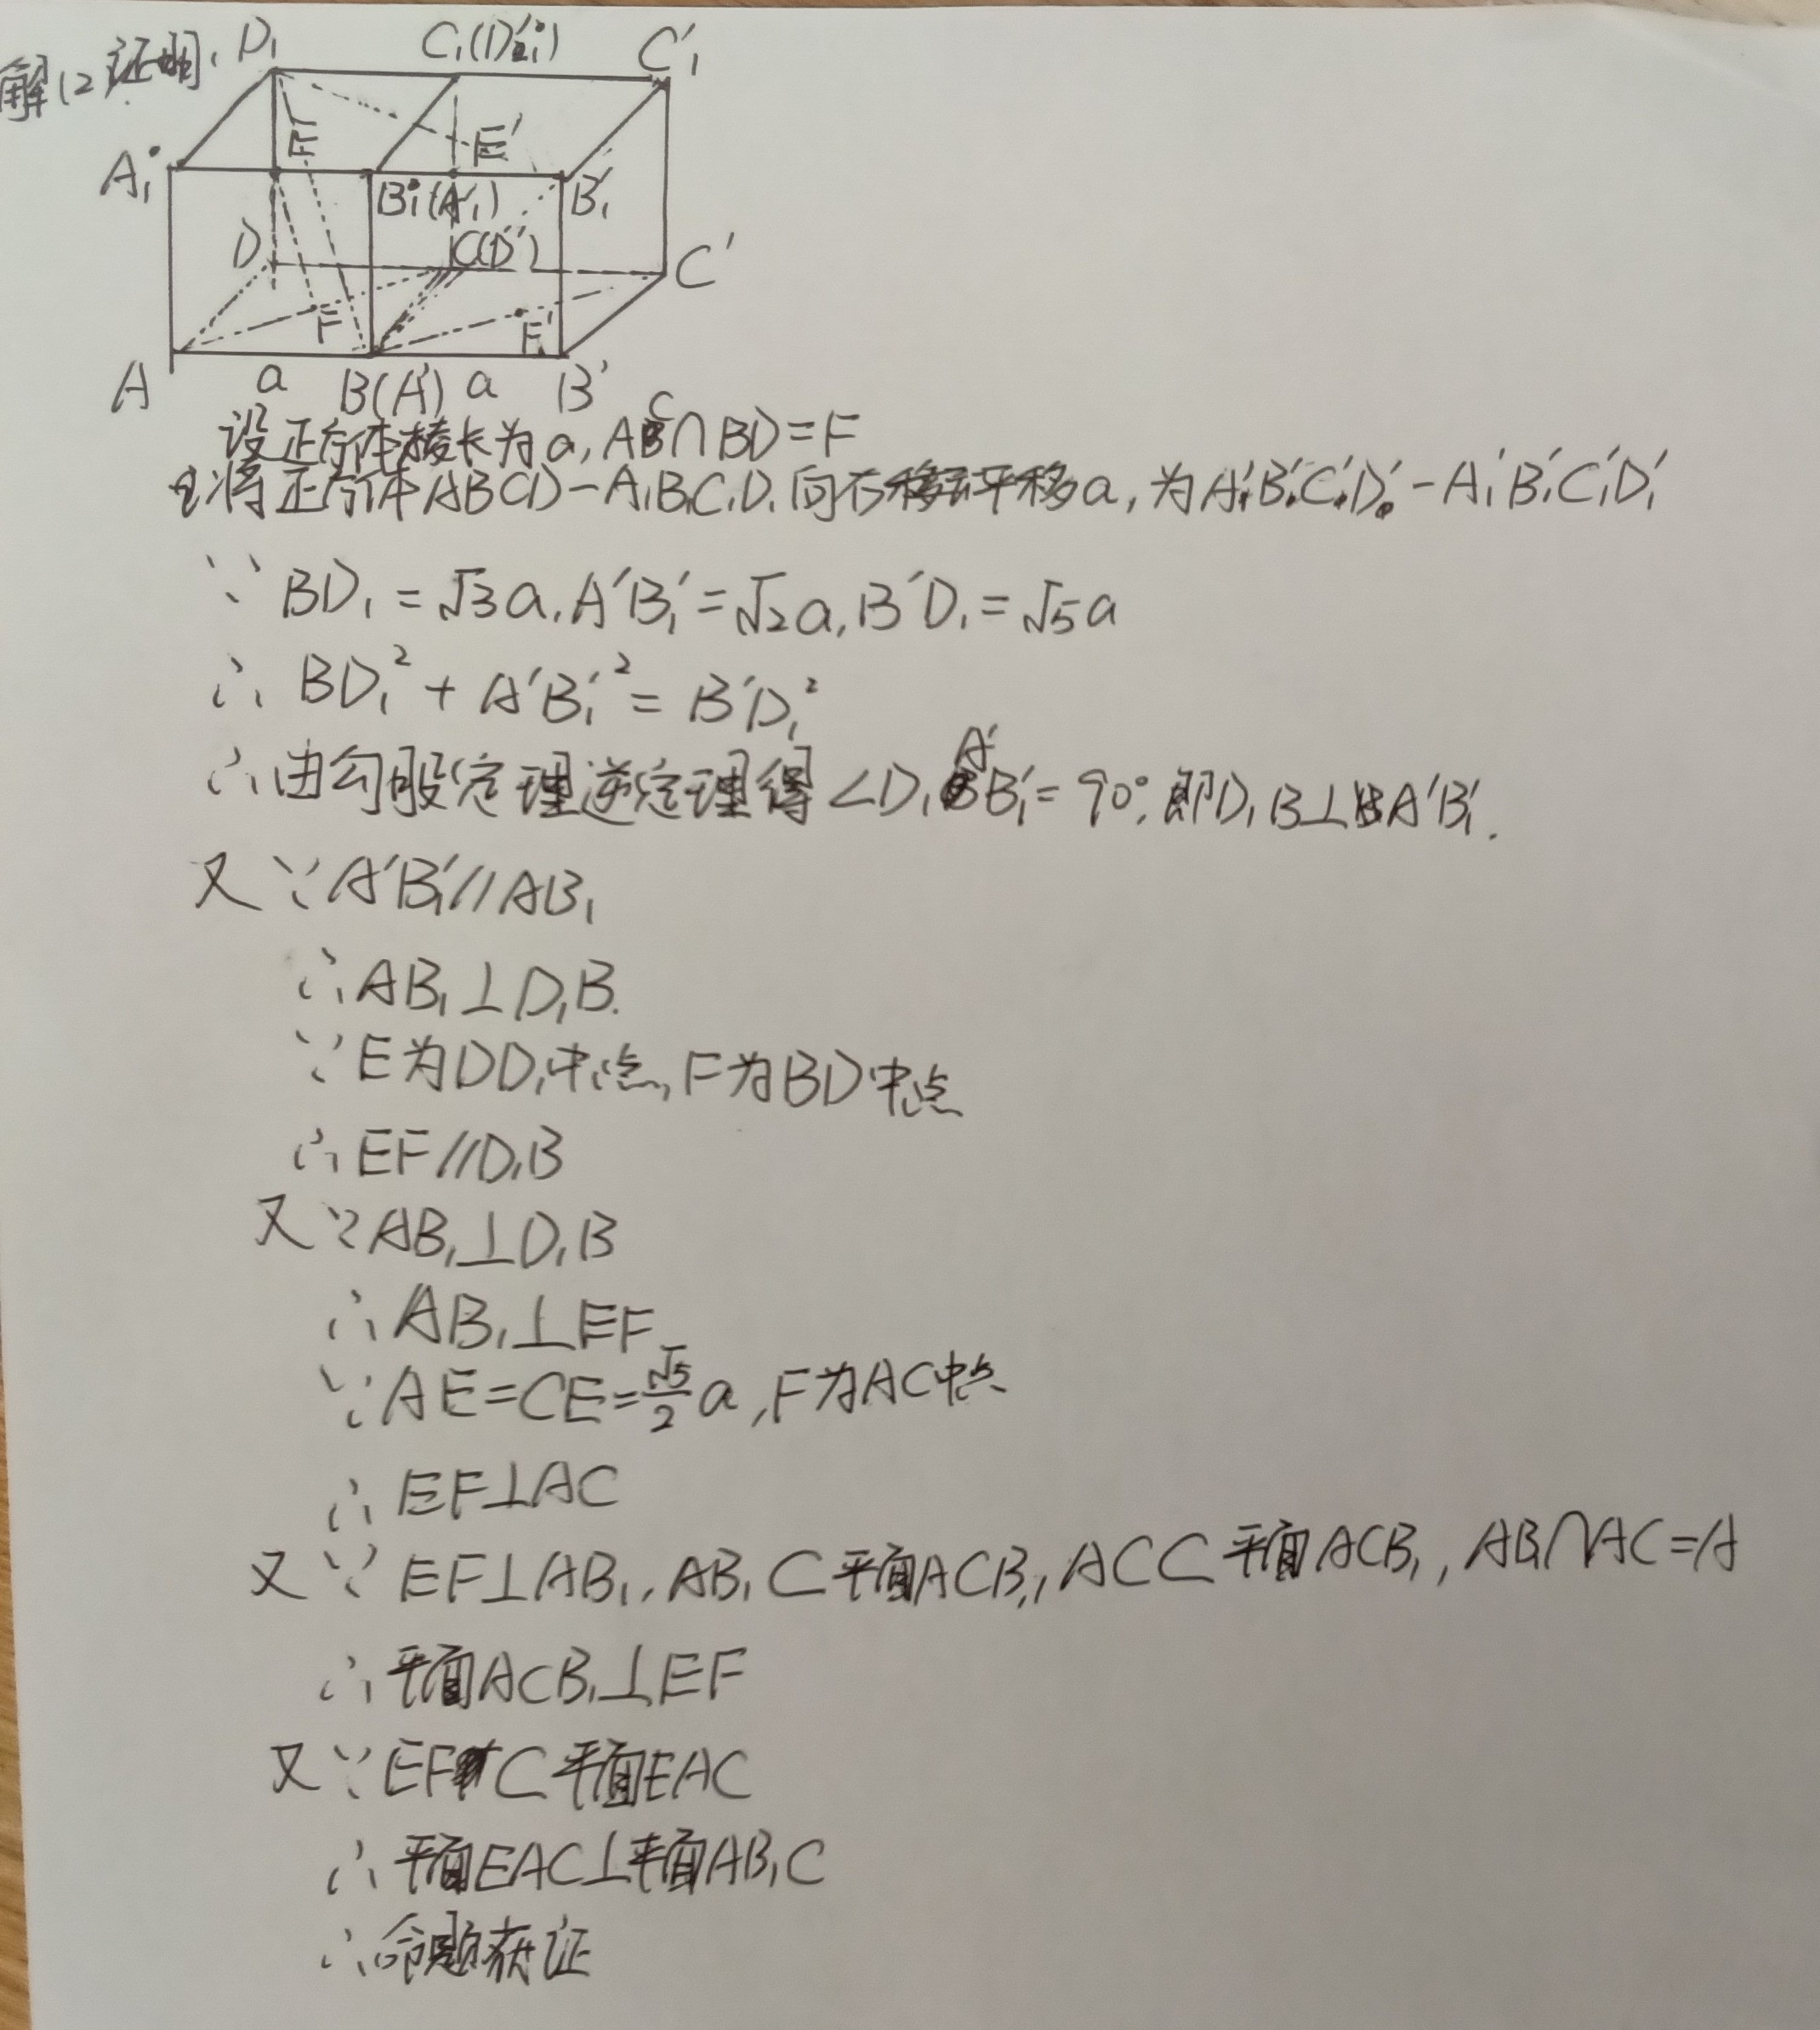 解(2)证明:
D₁ C₁(D₁') C₁'
E E'
A₁ B₁(A₁') B₁'
D C(D') C'
F F'
A a B(A') a B'
设正方体棱长为a,AC∩BD=F
将正方体ABCD-A₁B₁C₁D₁向右平移a,为A'B'C'D'-A₁'B₁'C₁'D₁'
∵BD₁=√3a,A'B₁'=√2a,B'D₁=√5a
∴BD₁²+A'B₁'²=B'D₁²
∴由勾股定理逆定理得∠D₁A'B₁'=90°,即D₁B⊥A'B₁'.
又∵A'B₁'//AB₁
∴AB₁⊥D₁B.
∵E为DD₁中点,F为BD中点
∴EF//D₁B
又∵AB₁⊥D₁B
∴AB₁⊥EF
∵AE=CE=√5/2a,F为AC中点
∴EF⊥AC
又∵EF⊥AB₁,AB₁⊂平面ACB₁,AC⊂平面ACB₁,AB₁∩AC=A
∴平面ACB₁⊥EF
又∵EF⊂平面EAC
∴平面EAC⊥平面AB₁C
∴命题获证